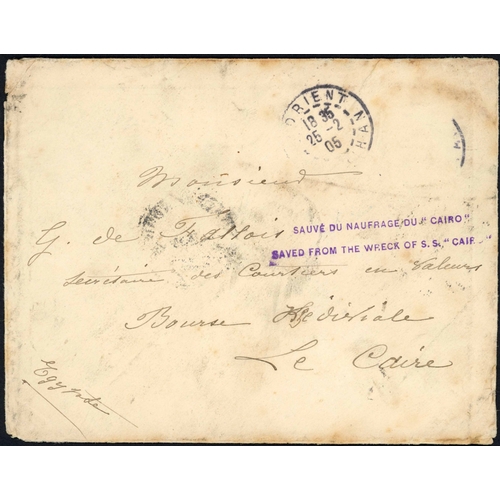 ORIENT NA
18 35
25-2
05
Monsieur
G. de
SAUVÉ DU NAUFRAGE DU "CAIRO"
SAVED FROM THE WRECK OF S.S. "CAIR
Secrétaire des Courtiers en Valeurs
Bourse Khédiviale
Le Caire
Egypte